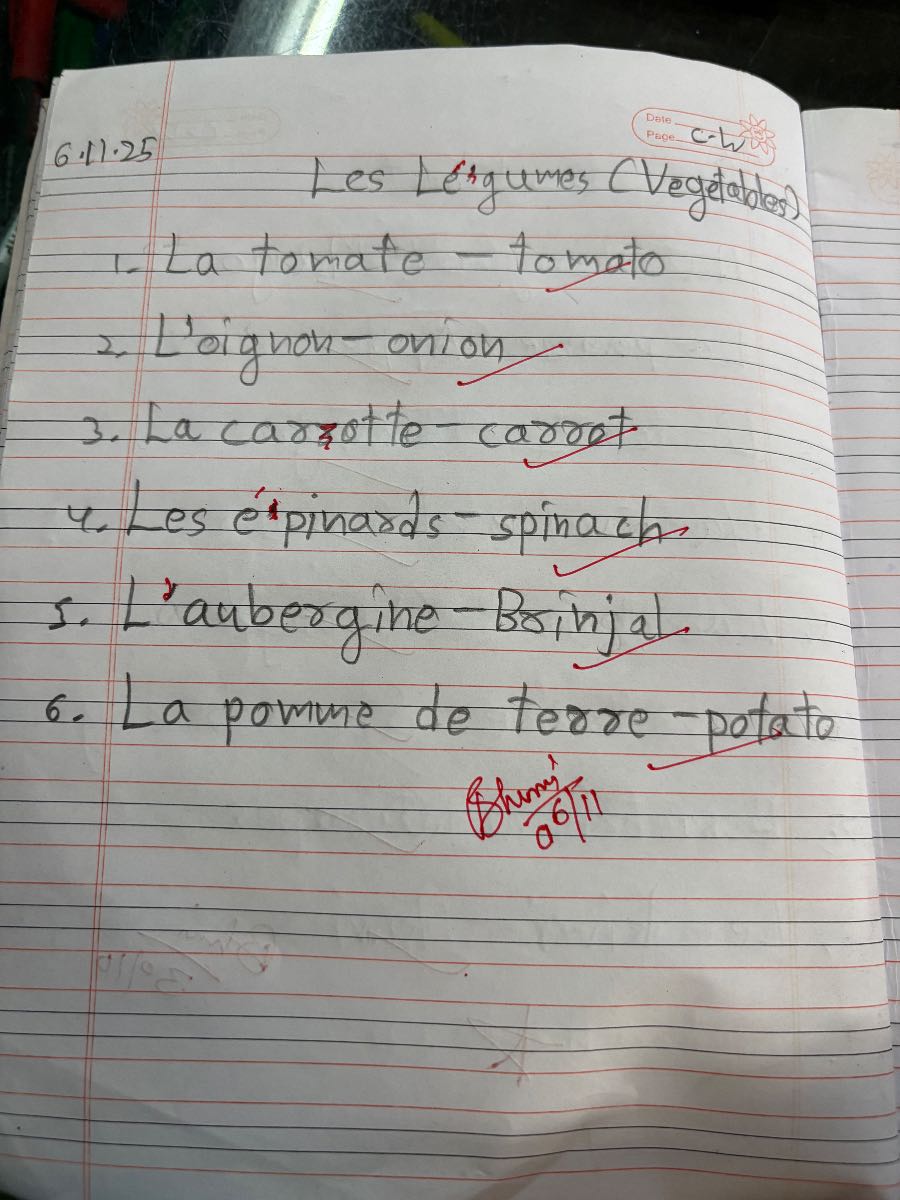 Date
Page C-W
6.11.25
Les Légumes (Vegetables)
1. La tomate - tomato
2. L'oignon - onion
3. La carotte - carrot
4. Les épinards - spinach
5. L'aubergine - Brinjal
6. La pomme de terre - potato
06/11